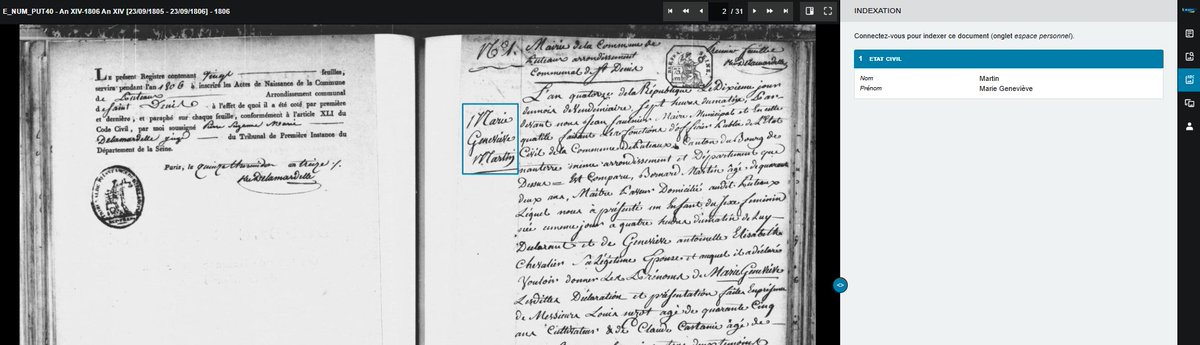 E_NUM_PUT40 - An XIV-1806 An XIV [23/09/1805 - 23/09/1806] - 1806
2 / 31
Le présent Registre contenant vingt feuilles,
servira pendant l'an 1806 à inscrire les Actes de Naissance de la Commune
de Puteaux Arrondissement communal
de Saint Denis à l'effet de quoi il a été coté par première
et dernière, et paraphé sur chaque feuille, conformément à l'article XLI du
Code Civil, par moi soussigné Pierre
Delamardelle du Tribunal de Première Instance du
Département de la Seine.
Paris, le quinze thermidor an treize /.
Delamardelle
N° 1. Mairie de la Commune de
Puteaux arrondissement
Communal de St Denis
premier feuillet
Delamardelle
1 Marie
Geneviève
Martin
L'an quatorze de la République Le Dixieme jour
du mois de Vendemiaire, Sept heures du matin, Pardevant nous Jean
Maire Municipal et en cette
qualité faisant les fonctions d'officier Public de l'Etat
Civil de la Commune De Puteaux Canton du Bourg de
nanterre meme arrondissement et Département que
Dessus = Est Comparu, Bernard Martin âgé de quarante
deux ans, Maître Domicilié audit Puteaux
Lequel nous à présenté un Enfant du sexe feminin
née ce même jour à quatre heures du matin de Luy
Declarant et de Geneviève antoinette Elisabeth
Chevalier Sa Légitime Epouse et auquel il a déclaré
Vouloir donner Les Prénoms de Marie Geneviève
Lesdittes Déclaration et présentation faites En présence
de Messieurs Louis nezot agé de quarante Cinq
ans Cultivateur & de Claude Castanié âgé de
INDEXATION
Connectez-vous pour indexer ce document (onglet espace personnel).
1 ETAT CIVIL
Nom Martin
Prénom Marie Geneviève